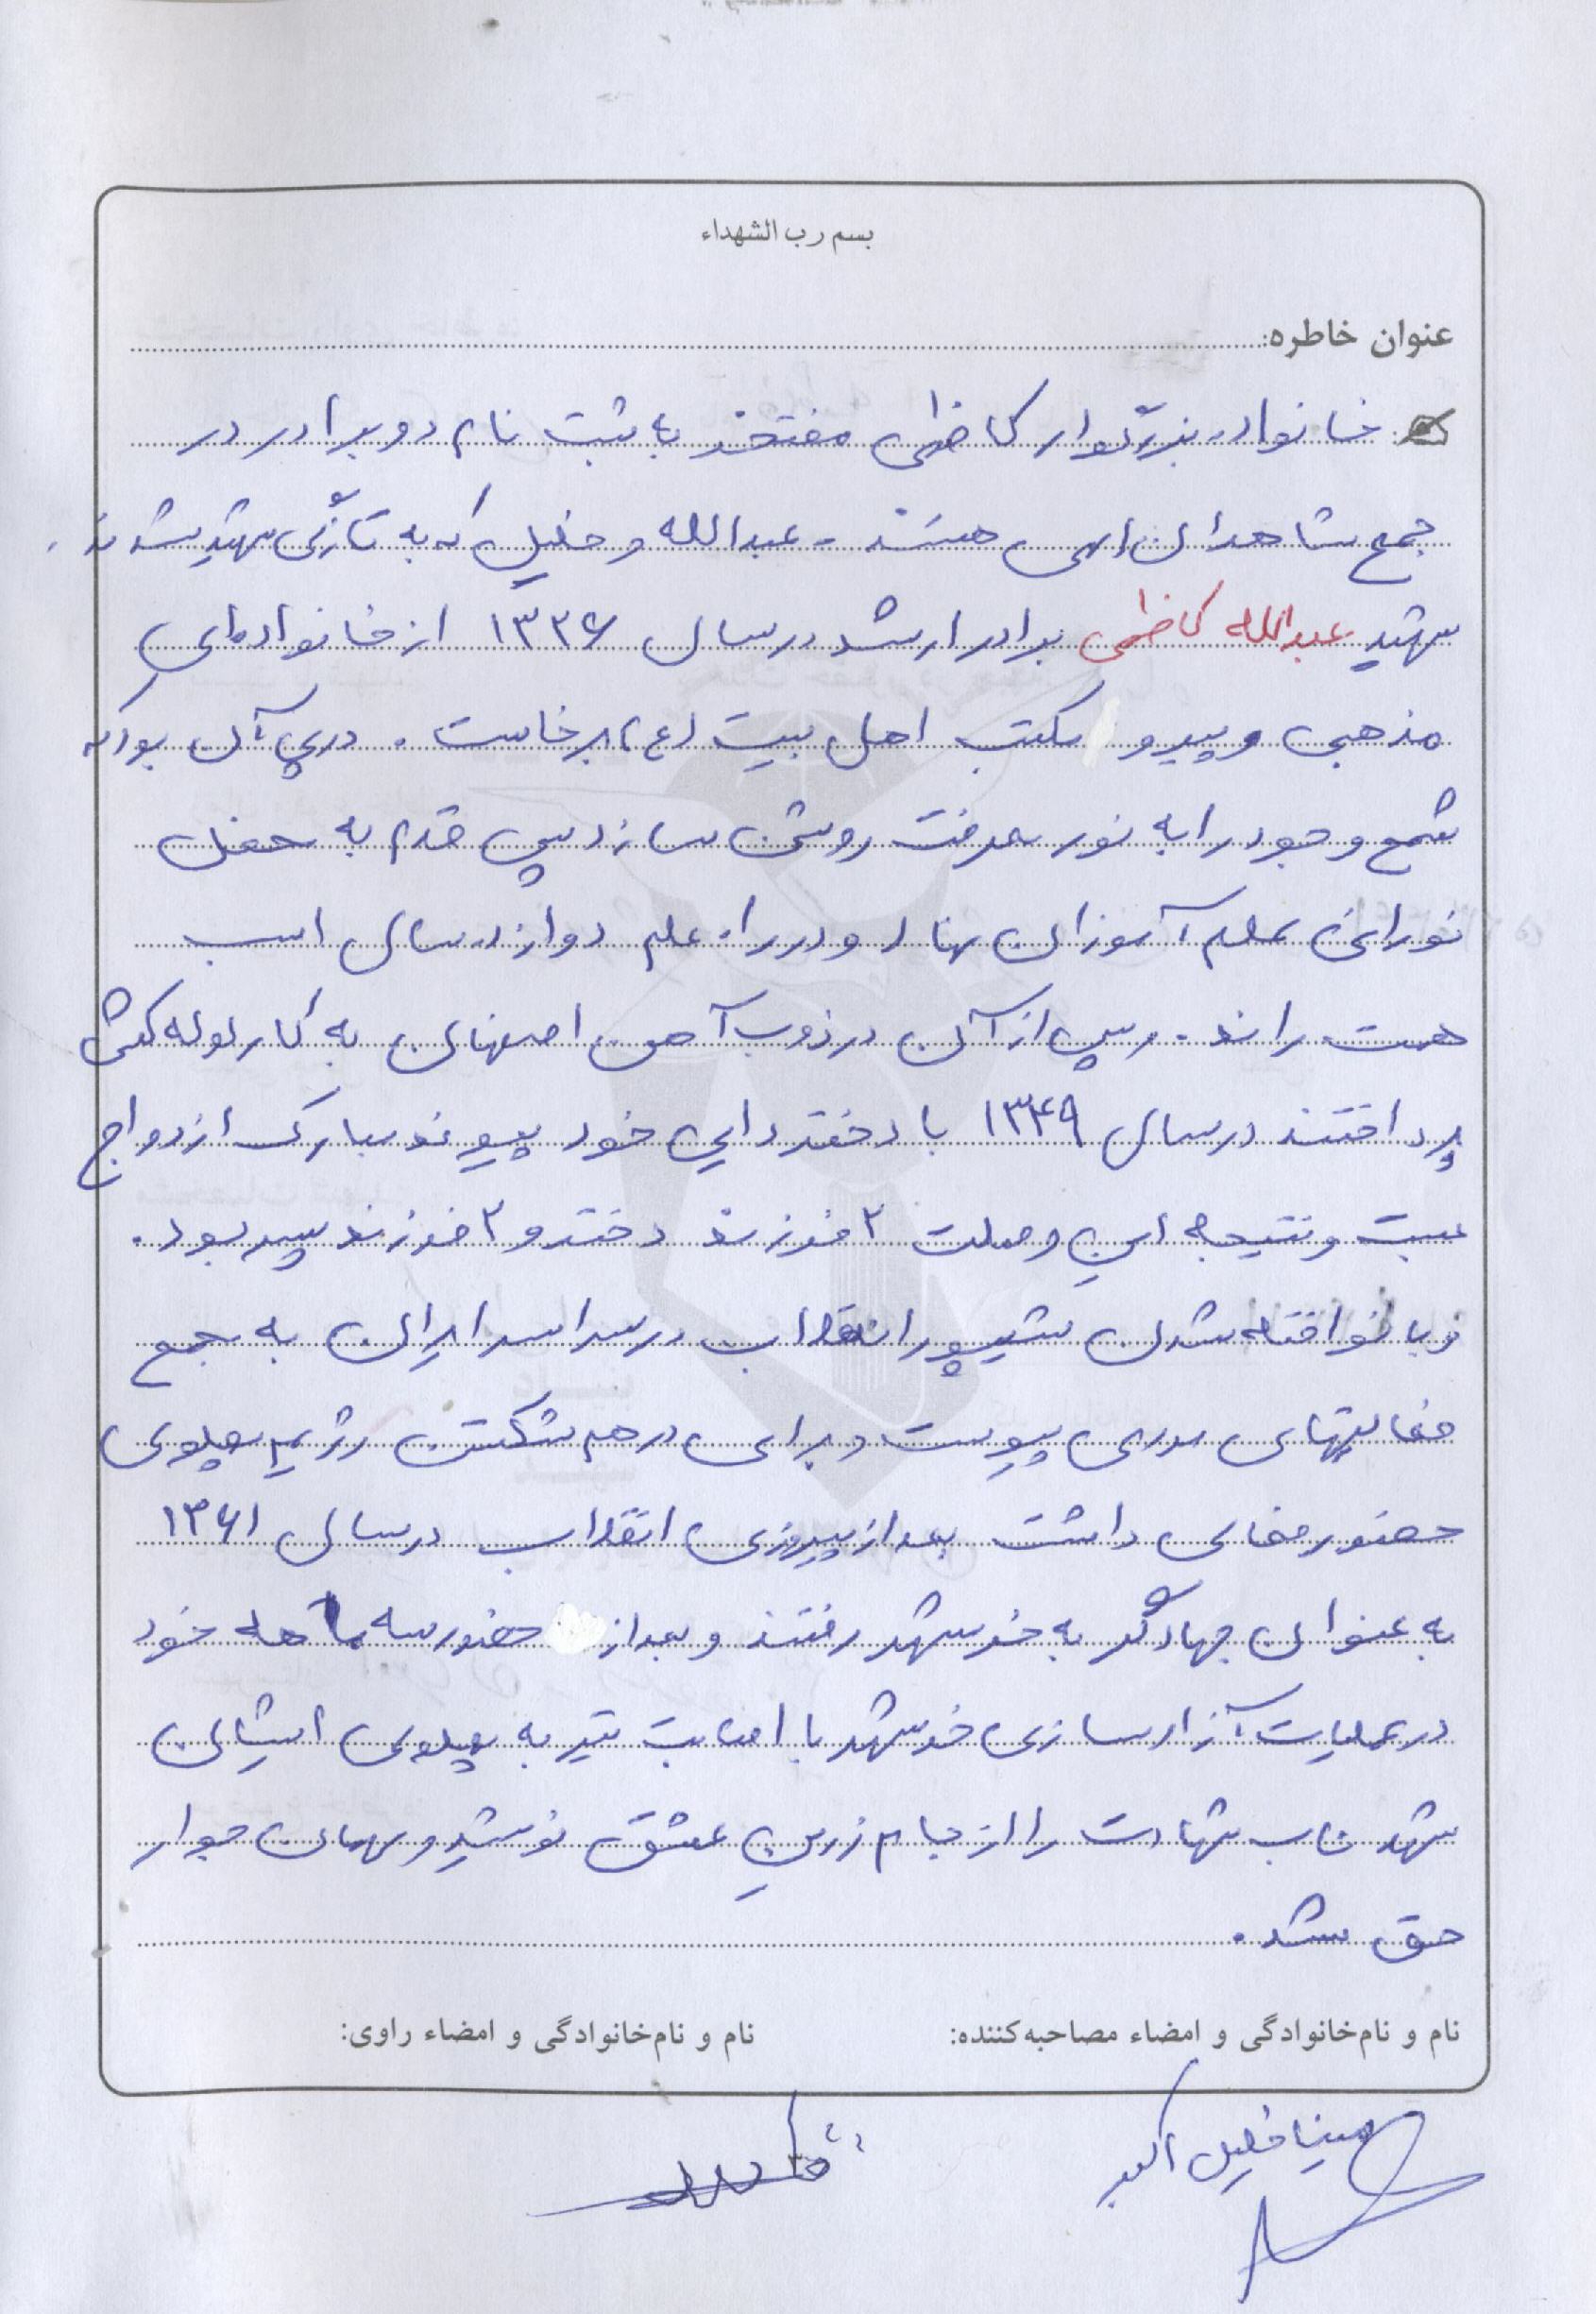 بسم رب الشهداء
عنوان خاطره:
خانواده بزرگوار کاظمی مفتخر به ثبت نام دو برادر در
جمع شاهدان الهی هستند - عبدالله و خلیل که به تازگی شهید شدند.
شهید عبدالله کاظمی برادر ارشد در سال ۱۳۲۶ از خانواده‌ای
مذهبی و پیرو مکتب اهل بیت (ع) برخاست. در پی آن بود که
شمع وجود را به نور معرفت روشن سازد پس قدم به محفل
نورانی علم آموزان نهاد و در راه علم دوازده سال اسب
همت راند. و پس از آن در ذوب آهن اصفهان به کار لوله کشی
پرداختند در سال ۱۳۴۹ با دختر دایی خود پیوند مبارک ازدواج
بست و نتیجه این وصلت ۲ فرزند دختر و ۲ فرزند پسر بود.
و با نواخته شدن شیپور انقلاب در سراسر ایران به جمع
فعالیتهای مردمی پیوست و برای در هم شکستن رژیم پهلوی
حضور فعالی داشت بعد از پیروزی انقلاب در سال ۱۳۶۱
به عنوان جهادگر به خرمشهر رفتند و بعد از حضور سه ماهه خود
در عملیات آزادسازی خرمشهر با اصابت تیر به پهلوی ایشان
شهد ناب شهادت را از جام زرین عشق نوشید و مهمان جوار
حق شد.
نام و نام‌خانوادگی و امضاء مصاحبه‌کننده:
نام و نام‌خانوادگی و امضاء راوی:
مینا خلیل اکبر